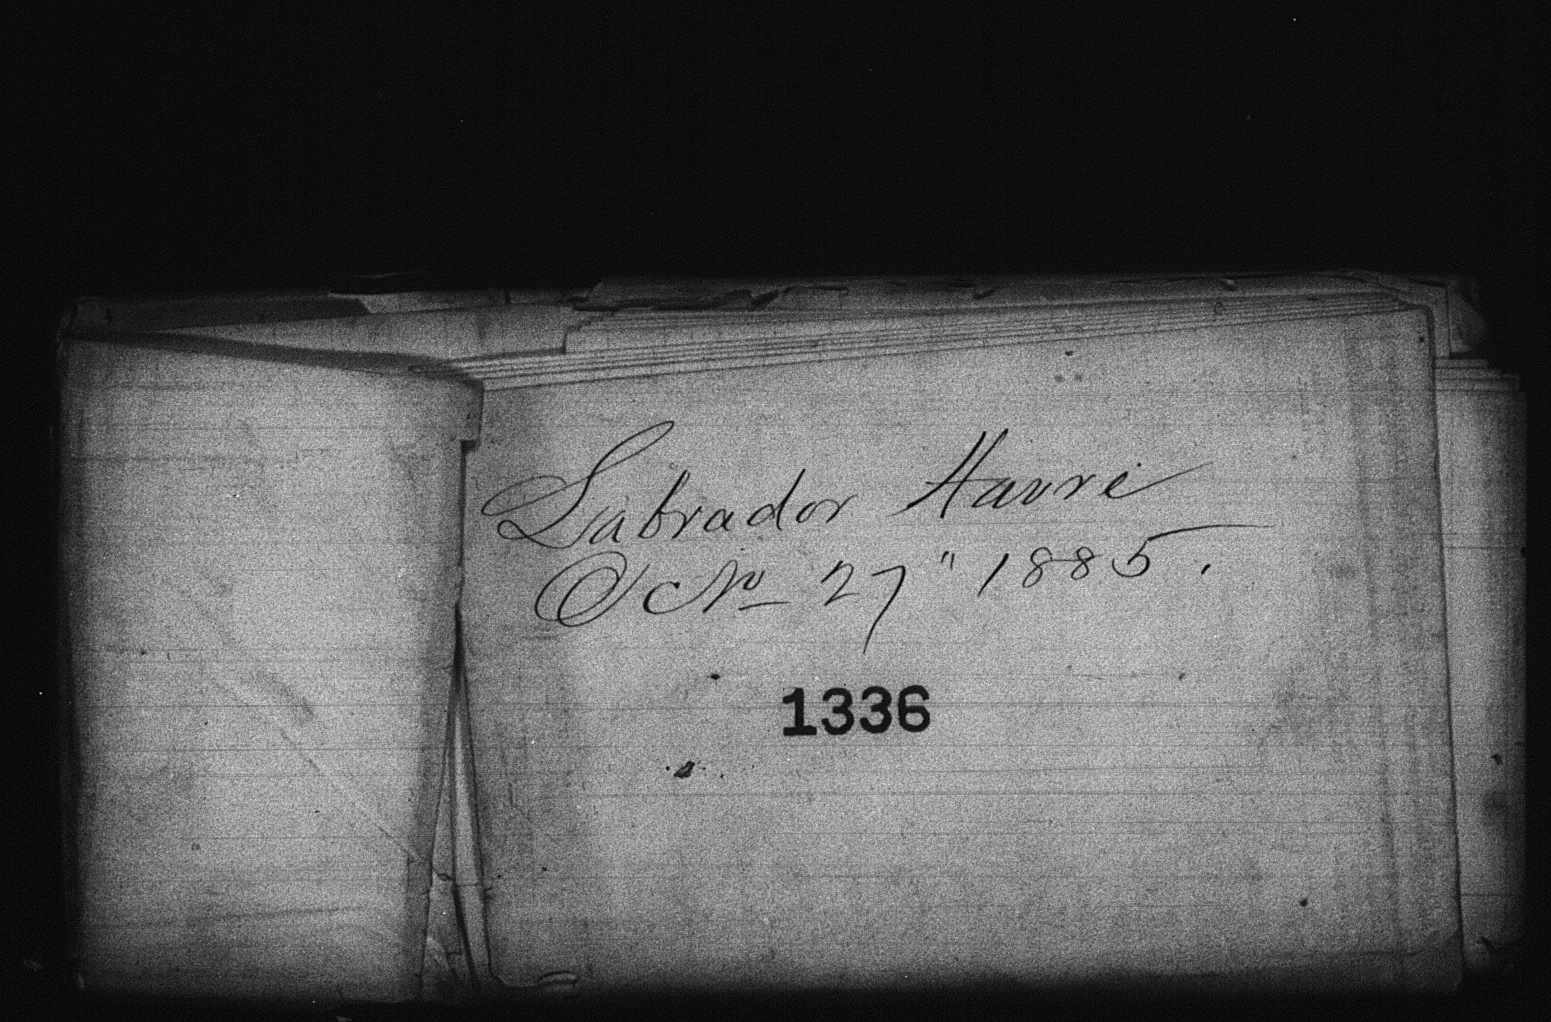 Labrador Havre
No 27" 1885.
1336